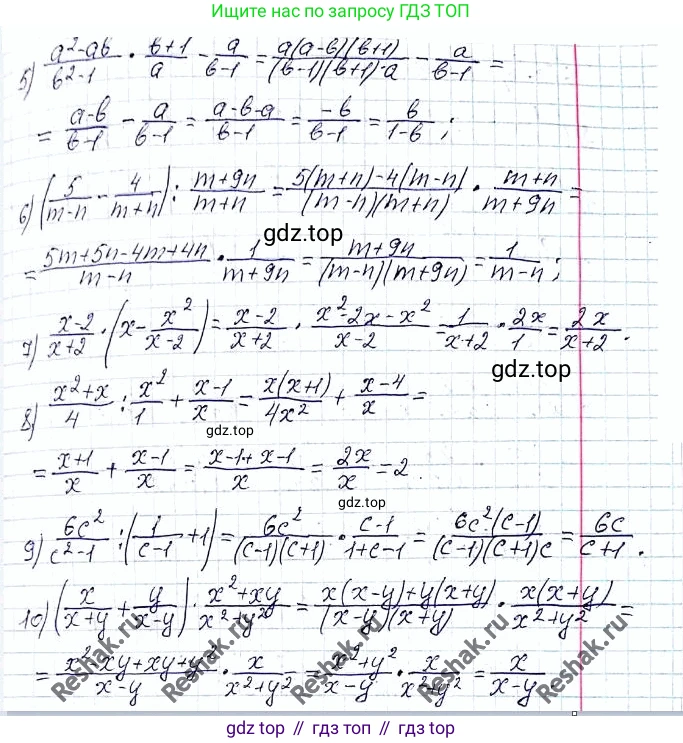 Ищите нас по запросу ГДЗ ТОП
5) \frac{a^2-ab}{b^2-1} \cdot \frac{b+1}{a} - \frac{a}{b-1} = \frac{a(a-b)(b+1)}{(b-1)(b+1) \cdot a} - \frac{a}{b-1} =
= \frac{a-b}{b-1} - \frac{a}{b-1} = \frac{a-b-a}{b-1} = \frac{-b}{b-1} = \frac{b}{1-b};
6) (\frac{5}{m-n} - \frac{4}{m+n}) : \frac{m+9n}{m+n} = \frac{5(m+n)-4(m-n)}{(m-n)(m+n)} \cdot \frac{m+n}{m+9n} =
gdz.top
= \frac{5m+5n-4m+4n}{m-n} \cdot \frac{1}{m+9n} = \frac{m+9n}{(m-n)(m+9n)} = \frac{1}{m-n};
7) \frac{x-2}{x+2} \cdot (x - \frac{x^2}{x-2}) = \frac{x-2}{x+2} \cdot \frac{x^2-2x-x^2}{x-2} = \frac{1}{x+2} \cdot \frac{2x}{1} = \frac{2x}{x+2}.
gdz.top
8) \frac{x^2+x}{4} : \frac{x^2}{1} + \frac{x-1}{x} = \frac{x(x+1)}{4x^2} + \frac{x-4}{x} =
gdz.top
= \frac{x+1}{x} + \frac{x-1}{x} = \frac{x-1+x-1}{x} = \frac{2x}{x} = 2.
gdz.top
9) \frac{6c^2}{c^2-1} : (\frac{1}{c-1} + 1) = \frac{6c^2}{(c-1)(c+1)} \cdot \frac{c-1}{1+c-1} = \frac{6c^2(c-1)}{(c-1)(c+1)c} = \frac{6c}{c+1}.
10) (\frac{x}{x+y} + \frac{y}{x-y}) \cdot \frac{x^2+xy}{x^2+y^2} = \frac{x(x-y)+y(x+y)}{(x-y)(x+y)} \cdot \frac{x(x+y)}{x^2+y^2} =
= \frac{x^2-xy+xy+y^2}{x-y} \cdot \frac{x}{x^2+y^2} = \frac{x^2+y^2}{x-y} \cdot \frac{x}{x^2+y^2} = \frac{x}{x-y}.
Reshak.ru
Reshak.ru
Reshak.ru
Reshak.ru
Reshak.ru
gdz top // гдз топ // гдз.top